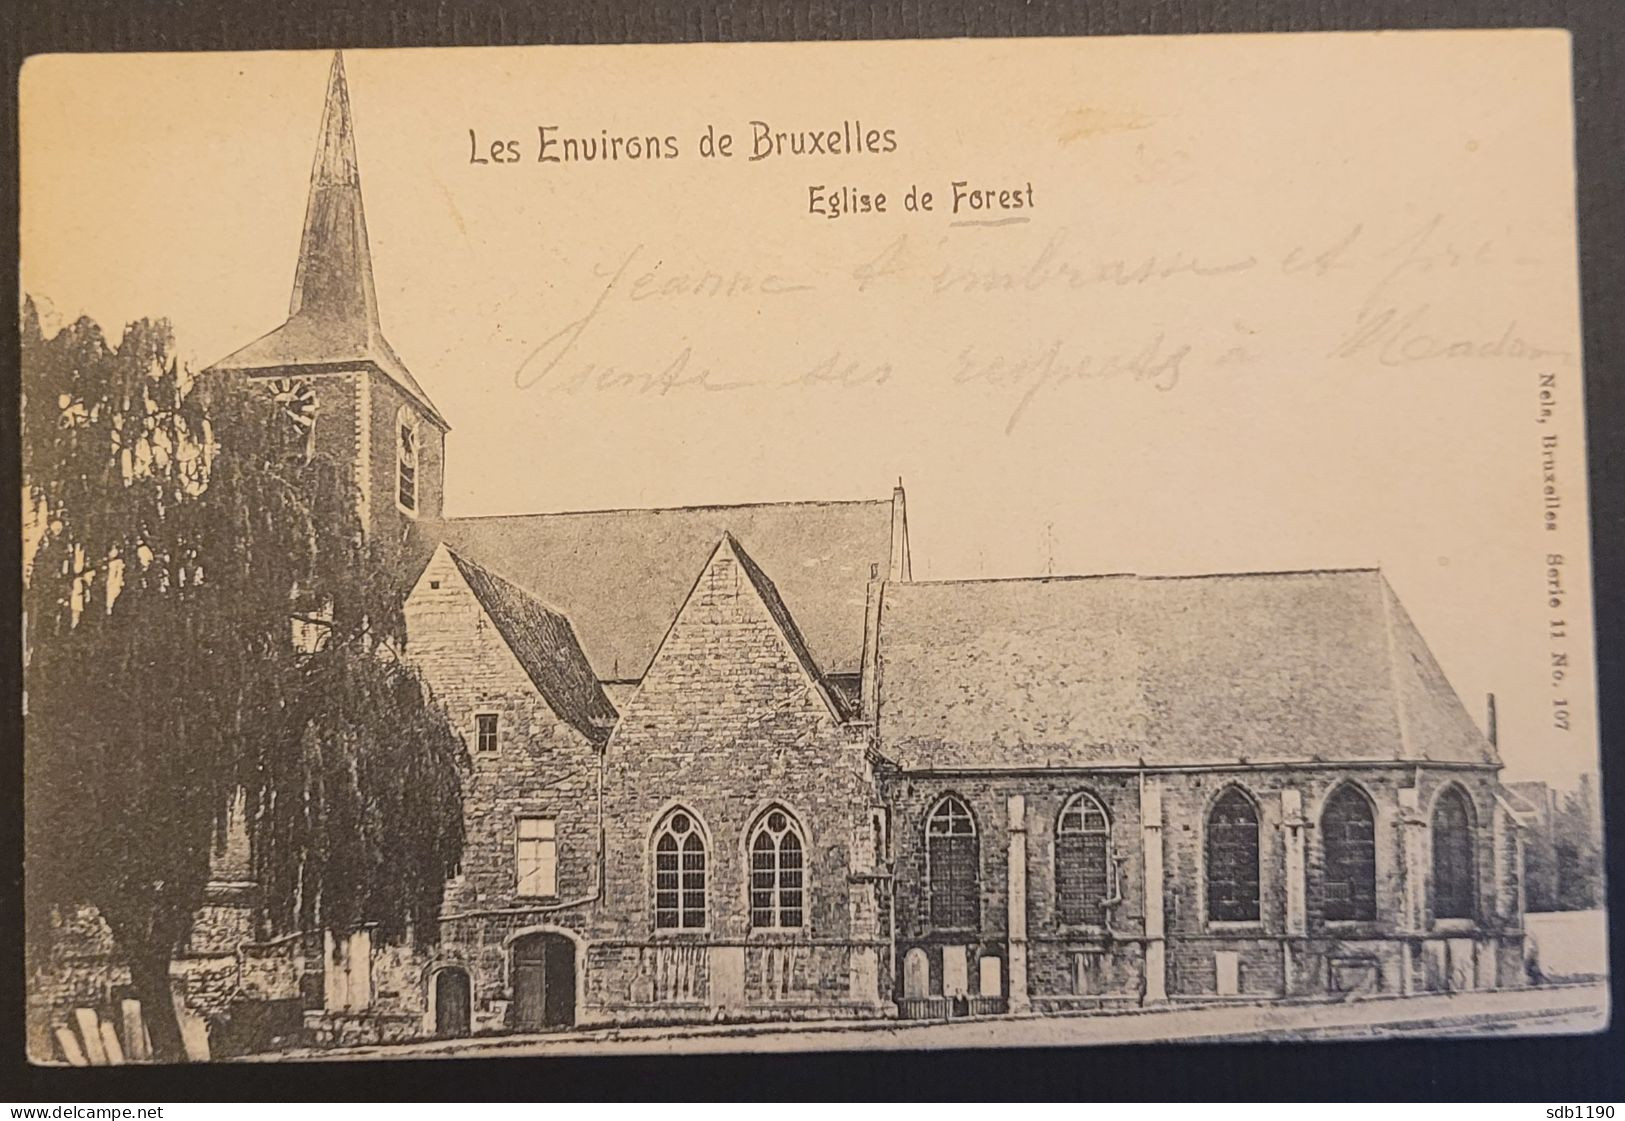 Les Environs de Bruxelles
Eglise de Forest
Jeanne t'embrasse et pré-
sente ses respects à Madam
Nels, Bruxelles Serie 11 No. 107
www.delcampe.net
sdb1190